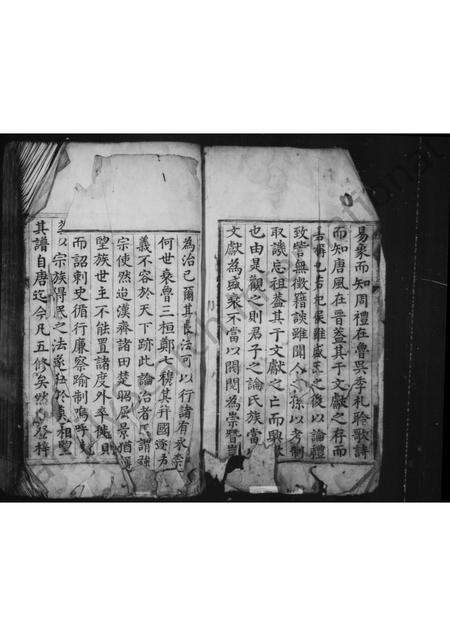 易象而知周禮在魯吳季札聆歌詩
而知唐風在晉蓋其于文獻之存而
杞侯雖盛王之後以論禮
致訾無徵籍談雖聞人以考制
取譏忘祖蓋其于文獻之亡而興
也由是觀之則君子之論氏族當
文獻為盛衰不當以閥閱為崇
為治已爾其長治可以行諸有永
何世衰魯三桓鄭七穆其升國
義不容於天下跡此論治者謂強
宗使然迨漢齊諸田楚昭屈景猶
望族世主不能置諸度外卒徙貝
而詔刺史循行廉察踰制嗚呼
以宗族得民之法相望
其譜自唐迄今凡五修矣然登梓